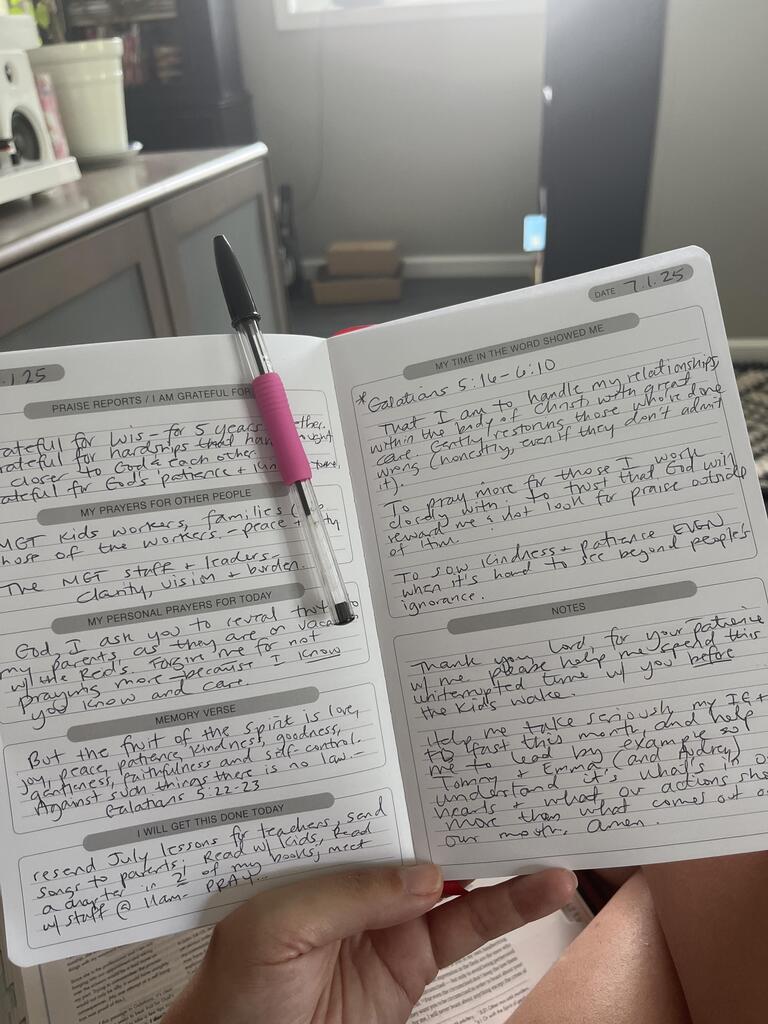 .1.25
PRAISE REPORTS / I AM GRATEFUL FOR
ateful for Luis - for 5 years
ateful for hardships that
closer to God & each other
ateful for God's patience +
MY PRAYERS FOR OTHER PEOPLE
MGT Kids workers, families
hose of the workers. - peace +
The MGT staff + leaders -
clarity, vision + burden.
MY PERSONAL PRAYERS FOR TODAY
God, I ask you to reveal
my parents as they are on
w/ the Red's. Forgive me for not
praying more because I know
you know and care.
MEMORY VERSE
But the fruit of the Spirit is love,
joy, peace, patience, kindness, goodness,
gentleness, faithfulness and self-control.
Against such things there is no law. -
Galatians 5:22-23
I WILL GET THIS DONE TODAY
resend July lessons for teachers, send
songs to parents; Read w/ kids, Read
a chapter in 2 of my books; meet
w/ staff @ 11am - PRAY
DATE 7.1.25
MY TIME IN THE WORD SHOWED ME
* Galatians 5:16 - 6:10
That I am to handle my relationships
within the body of Christ with great
care. Gently restoring those who've done
wrong (honestly, even if they don't admit
it).
To pray more for those I work
closely with. To trust that God will
reward me & not look for praise outside
of Him.
To sow kindness + patience EVEN
when it's hard to see beyond people's
ignorance.
NOTES
Thank you, Lord, for your patience
w/ me. please help me spend this
uniterrupted time w/ you before
the kids wake.
Help me take seriously my IG +
FB fast this month, and help
me to lead by example so
Tommy + Emma (and Audrey)
understand it's what's in
hearts + what our actions
more than what comes out
our mouth. amen.